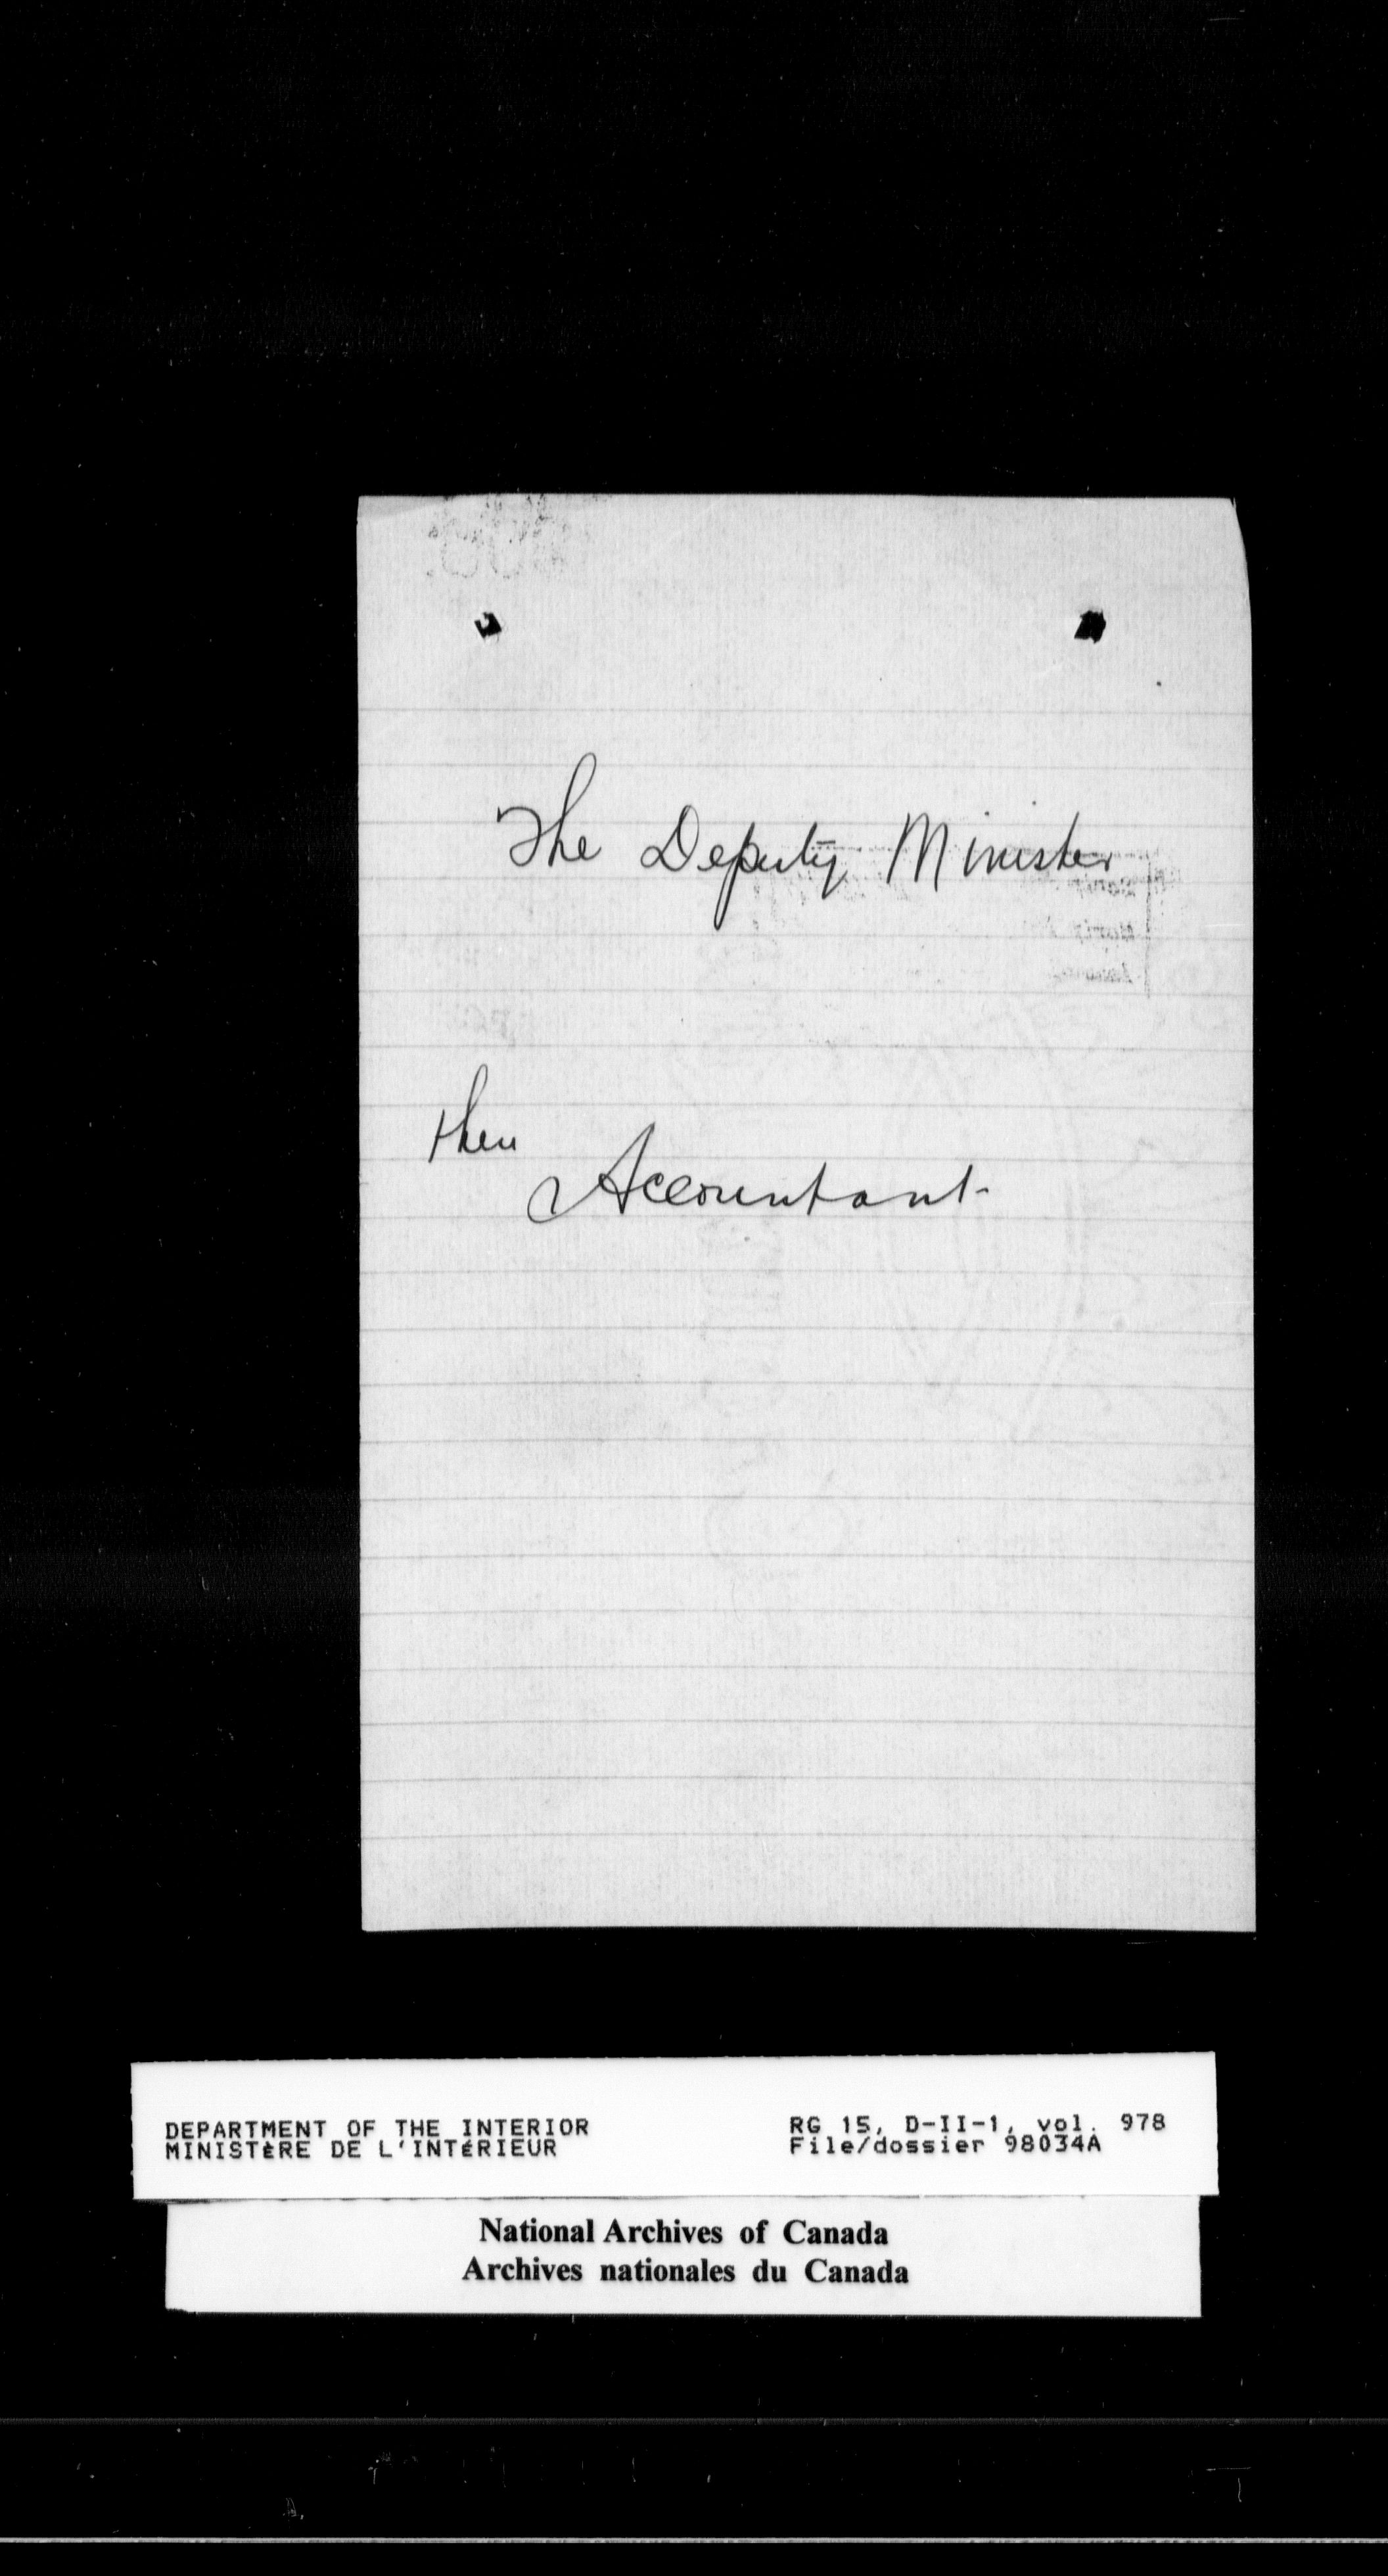 The Deputy Minister
then
Accountant
DEPARTMENT OF THE INTERIOR
MINISTÈRE DE L'INTÉRIEUR
RG 15, D-II-1, vol. 978
File/dossier 98034A
National Archives of Canada
Archives nationales du Canada